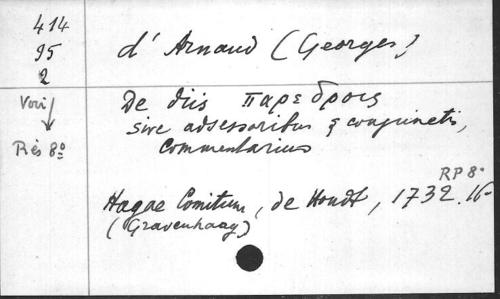 414
95
2
Voir
Rés 8º
d'Arnaud (Georges)
De diis παρεδροις
sive adsessoribus & conjunctis,
commentarius
RP 8º
Hagae Comitum, de Hondt, 1732. 16-
(Gravenhaag)